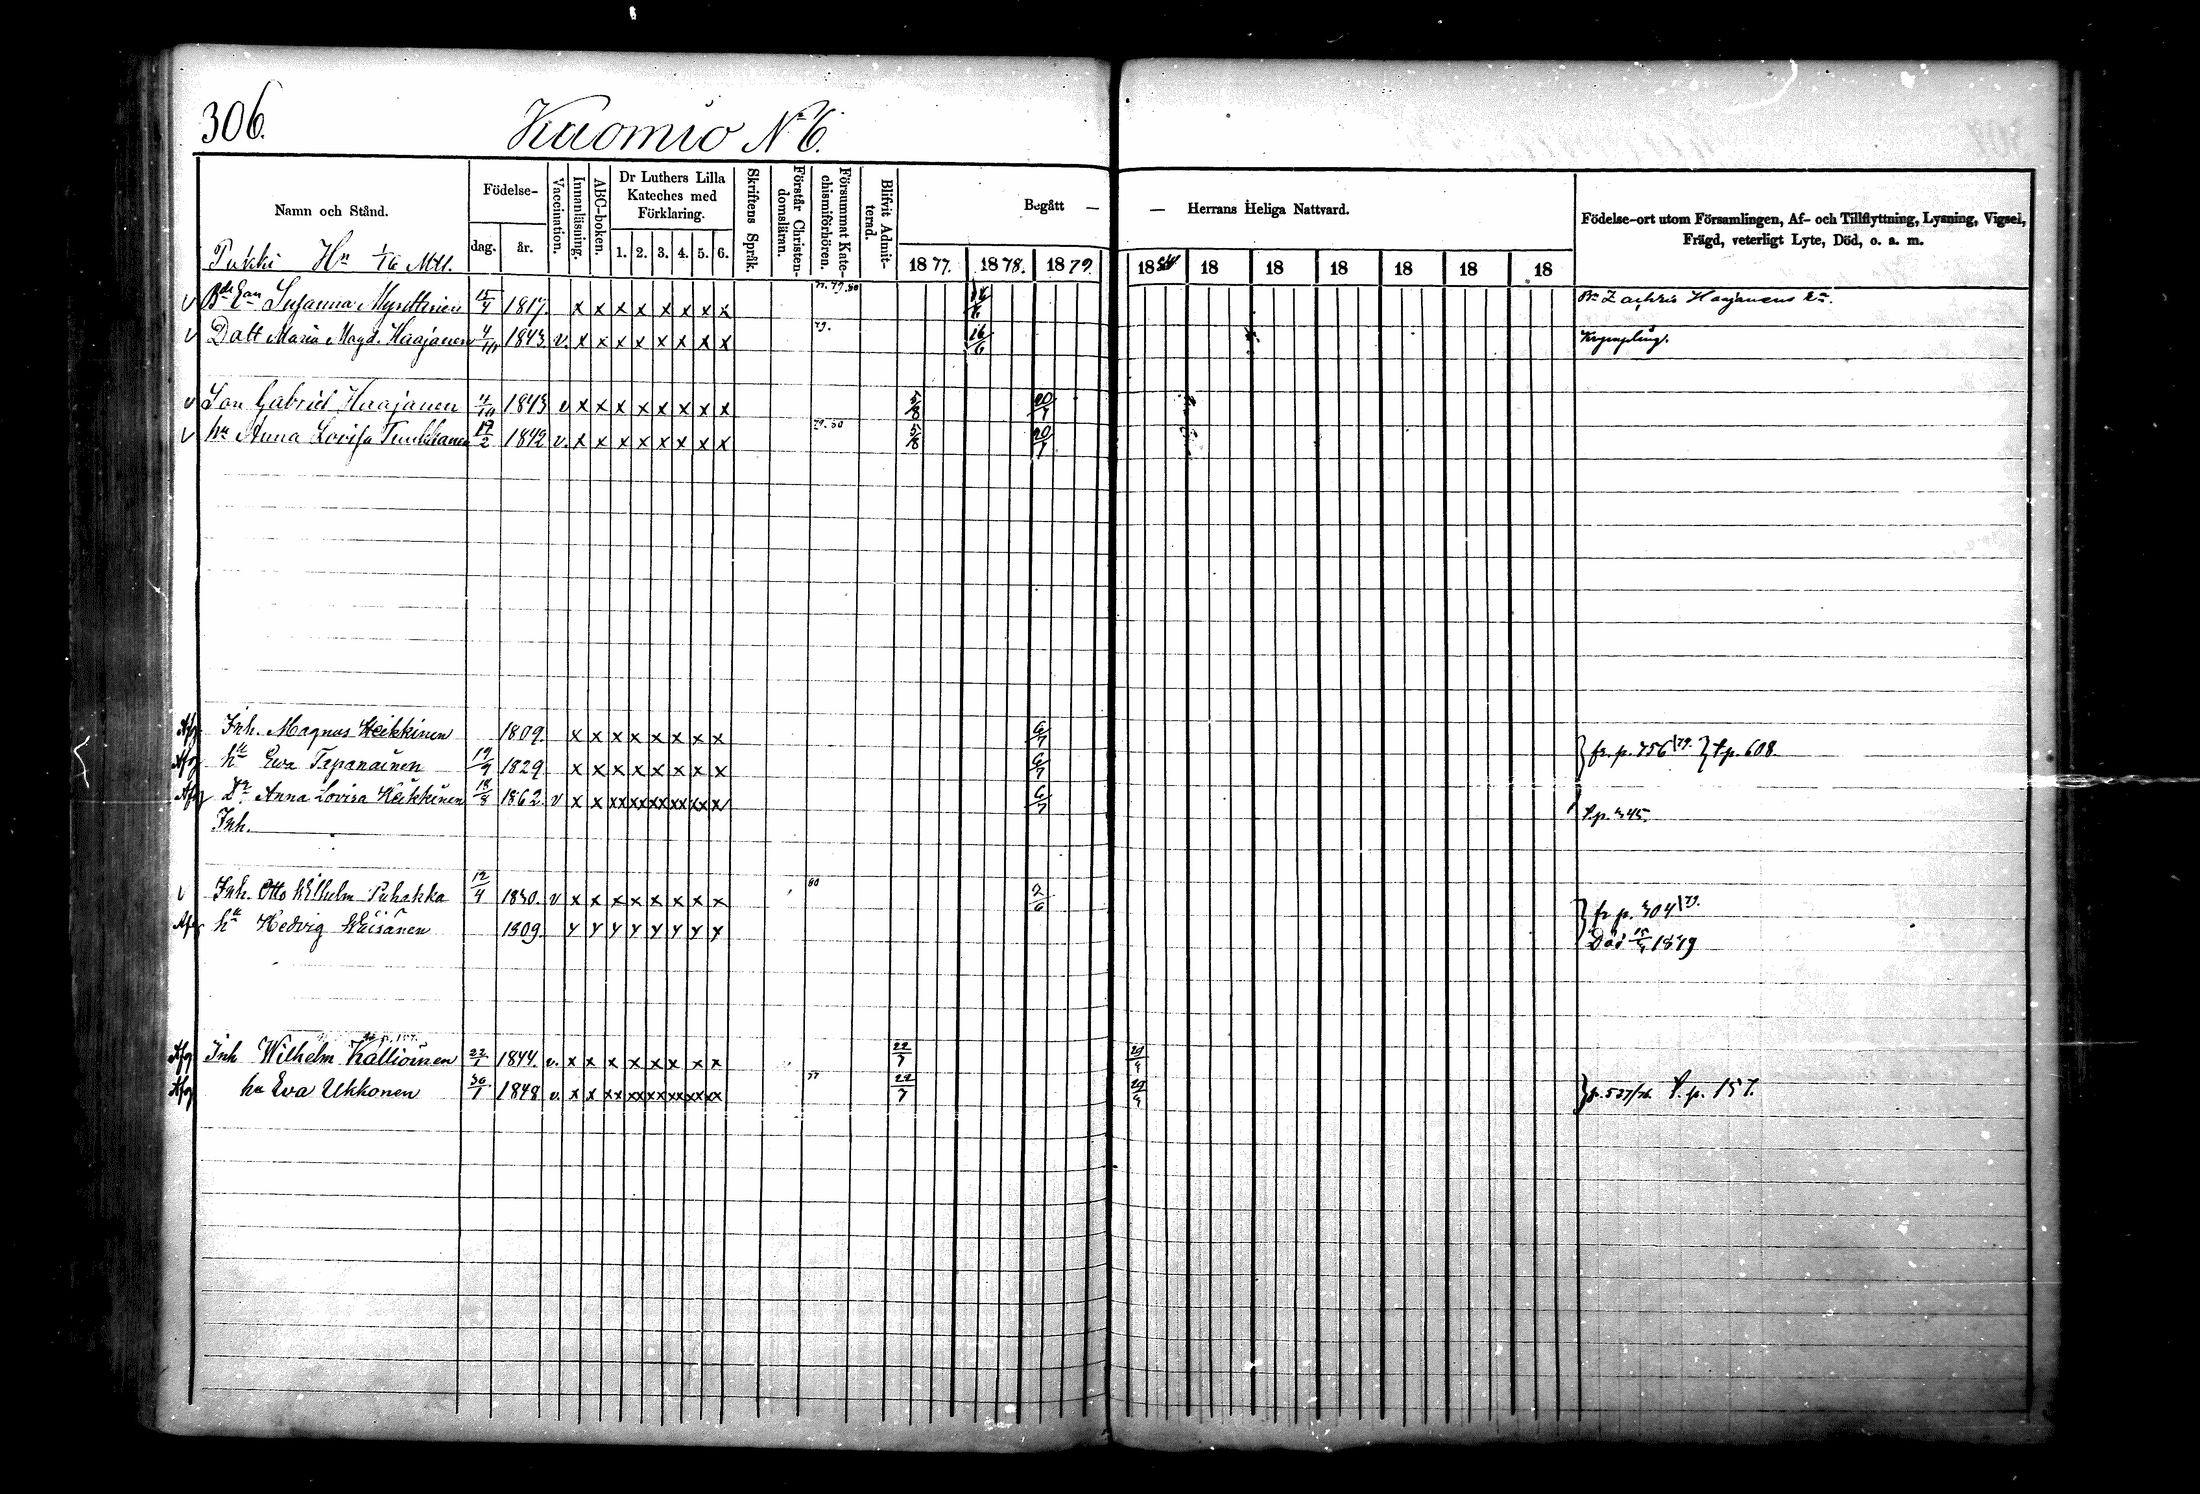 306.
Kuomio No 6.
Namn och Stånd.
Födelse-
dag.
år.
Vaccination.
Innanläsning.
ABC-boken.
Dr Luthers Lilla
Kateches med
Förklaring.
1. 2. 3. 4. 5. 6.
Skriftens Språk.
Förstår Christen-
domsläran.
Försummat Kate-
chismiförhören.
Blifvit Admit-
terad.
Begått —
— Herrans Heliga Nattvard.
1877. 1878. 1879 18 18 18 18 18 18 18
Födelse-ort utom Församlingen, Af- och Tillflyttning, Lysning, Vigsel,
Frägd, veterligt Lyte, Död, o. a. m.
Pukki Hn 1/16 Mtl.
v Susanna 15/4 1817. x x x x x x x x Haajanens
v Dott Maria Magd. Haajanen 4/11 1843 v. x x x x x x x x 79. 16/6 Krympling.
v Son Gabriel Haajanen 4/10 1843 v x x x x x x x x 5/8 20/7
v hu Anna Lovisa 19/2 1842 v. x x x x x x x x 79. 80 5/8 20/7
Afg Inh. Magnus Heikkinen 1809. x x x x x x x x 6/7
Afg hu Ewa Tapanainen 19/9 1829 x x x x x x x x 6/7 fr. p. 756/79. t. p. 608
Afg Dr Anna Lovisa Heikkinen 18/8 1862 v x x xx xx xx xx xx x 6/7 t. p. 345.
Inh.
v Inh. Otto Wilhelm Puhakka 12/4 1830. v x x x x x x x x 80 2/6
Afg hu Hedvig Väisänen 1809 y y y y y y y y fr p. 304/79.
Död 1879
t. p. 157.
Afg Inh Wilhelm Kallioinen 22/1 1844. v. x x x x x x x x 22/7 29/4
Afg hu Eva Ukkonen 30/1 1848 v. x x xx xx xx xx xx xx 77 22/7 29/4 p. 527/76. t. p. 157.